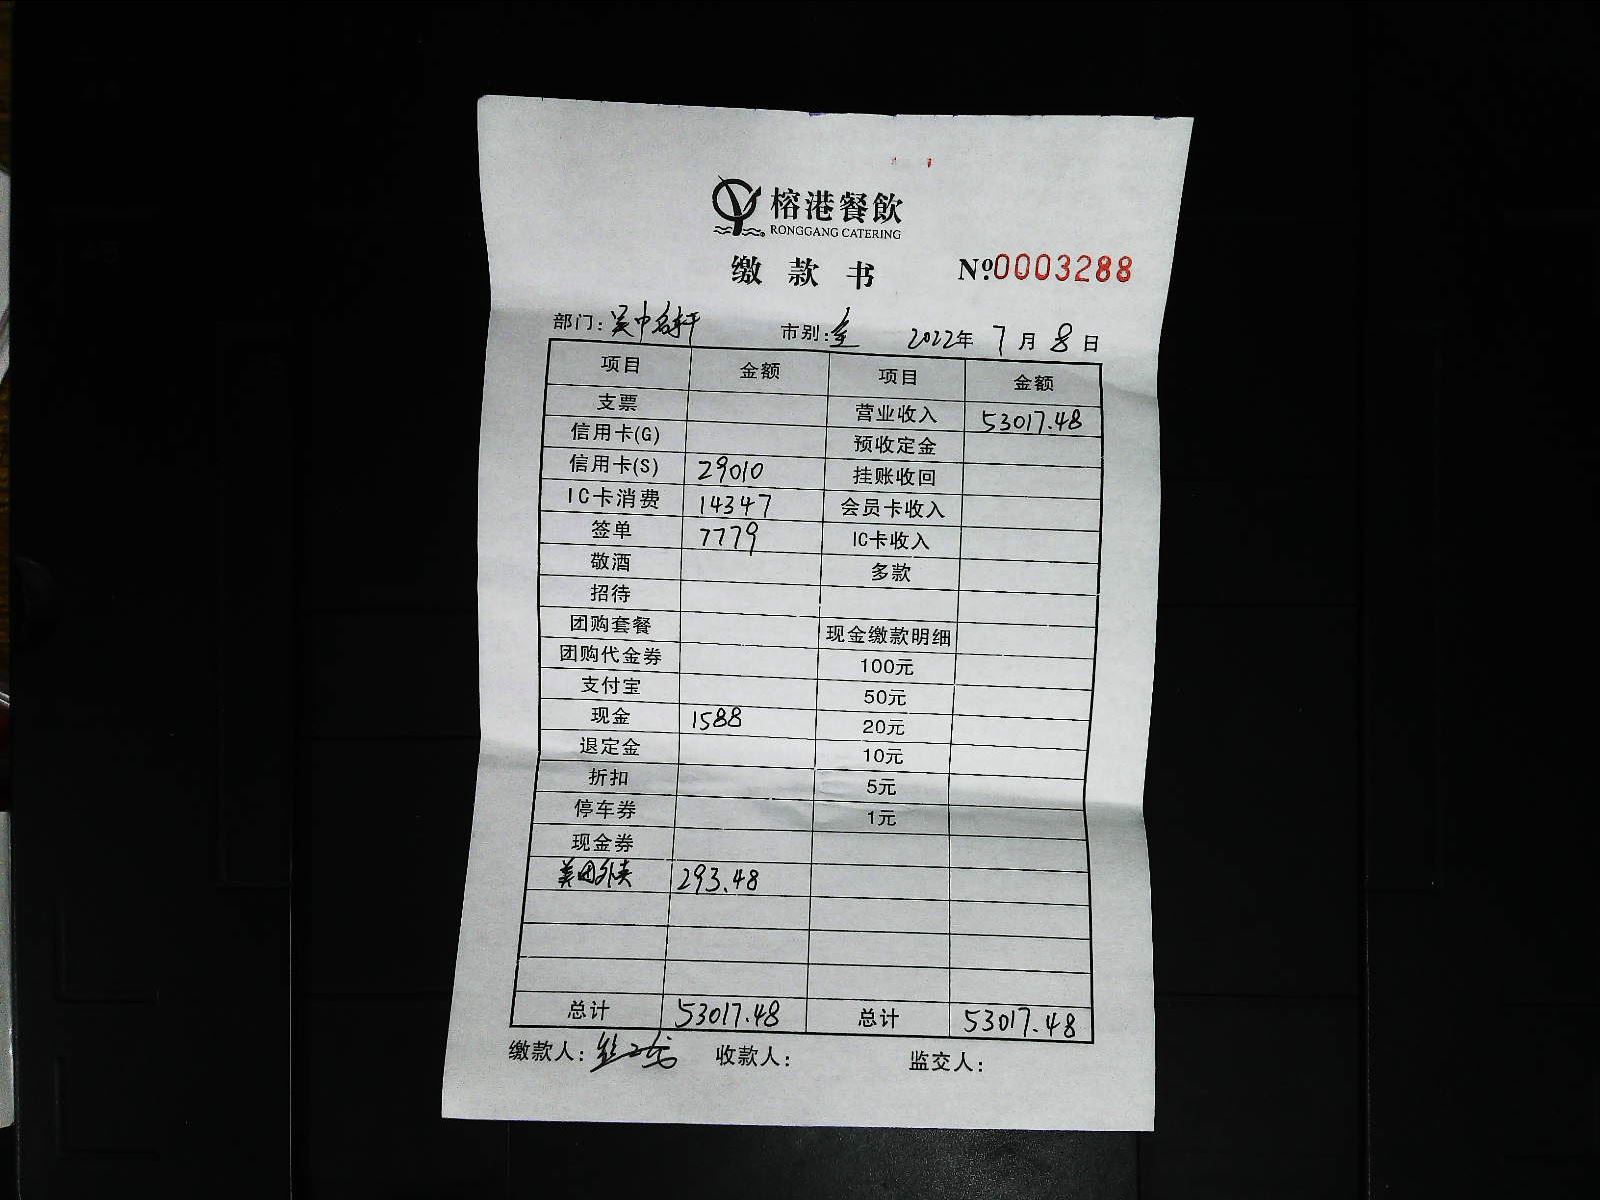 榕港餐飲
RONGGANG CATERING
缴款书 №0003288
部门: 吴中名轩 市别: 全 2022年 7月 8日
项目 金额 项目 金额
支票 营业收入 53017.48
信用卡(G) 预收定金
信用卡(S) 29010 挂账收回
IC卡消费 14347 会员卡收入
签单 7779 IC卡收入
敬酒 多款
招待
团购套餐 现金缴款明细
团购代金券 100元
支付宝 50元
现金 1588 20元
退定金 10元
折扣 5元
停车券 1元
现金券
美团外卖 293.48
总计 53017.48 总计 53017.48
缴款人: 收款人: 监交人: